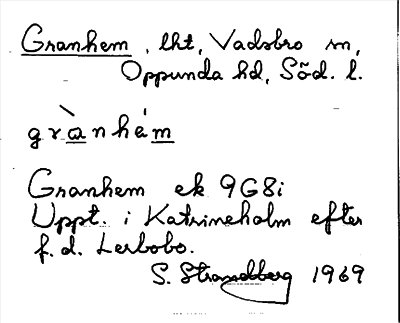 Granhem, lht, Vadsbro sn,
Oppunda hd, Söd. l.
grànhém
Granhem ek 9G8i
Uppt. i Katrineholm efter
f.d. Lerbobo.
S. Strandberg 1969